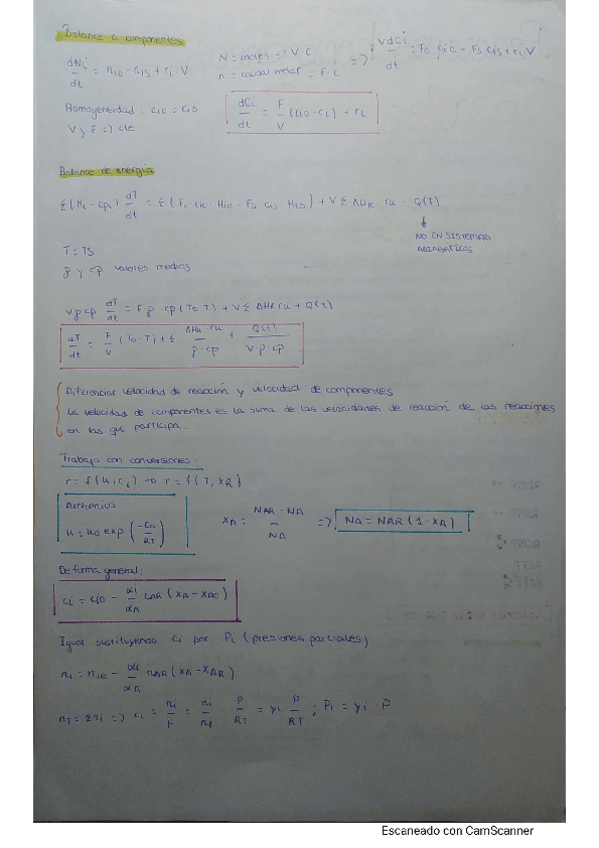 Balance a componentes
dNi/dt = ni0 - nis + ri V
N = moles = V·C
n = caudal molar = F·C
=> V dCi/dt = F0 ci0 - Fs cis + ri V
Homogeneidad: ci0 = cis
V y F => cte
dCi/dt = F/V (ci0 - ci) + ri
Balance de energía
= Σ(F0 ci0 Hi0 - Fs cis His) + V Σ ΔHR
Q(t)
NO EN SISTEMAS
ADIABÁTICOS
T = TS
ρ y cp valores medios
Vρcp dT/dt = F·ρ·cp (T0 - T) + V Σ ΔHR ru + Q(t)
dT/dt = F/V (T0 - T) + Σ ΔHR·ru/ρ·cp + Q(t)/V·ρ·cp
Diferenciar velocidad de reacción y velocidad de componentes
La velocidad de componentes es la suma de las velocidades de reacción de las reacciones
en las que participa.
Trabajo con conversiones:
r = f(u, ci) -> r = f(T, XR)
Arrhenius
u = u0 exp(-Ea/RT)
XA = NAR - NA/NA => NA = NAR (1 - XA)
De forma general:
ci = ci0 - αi/αA CAR (XA - XA0)
Igual sustituyendo ci por Pi (presiones parciales)
αi/αA nAR (XA - XAR)
nT = Σni => ci = ni/F = ni/nT · P/RT = yi P/RT ; Pi = yi·P
Escaneado con CamScanner